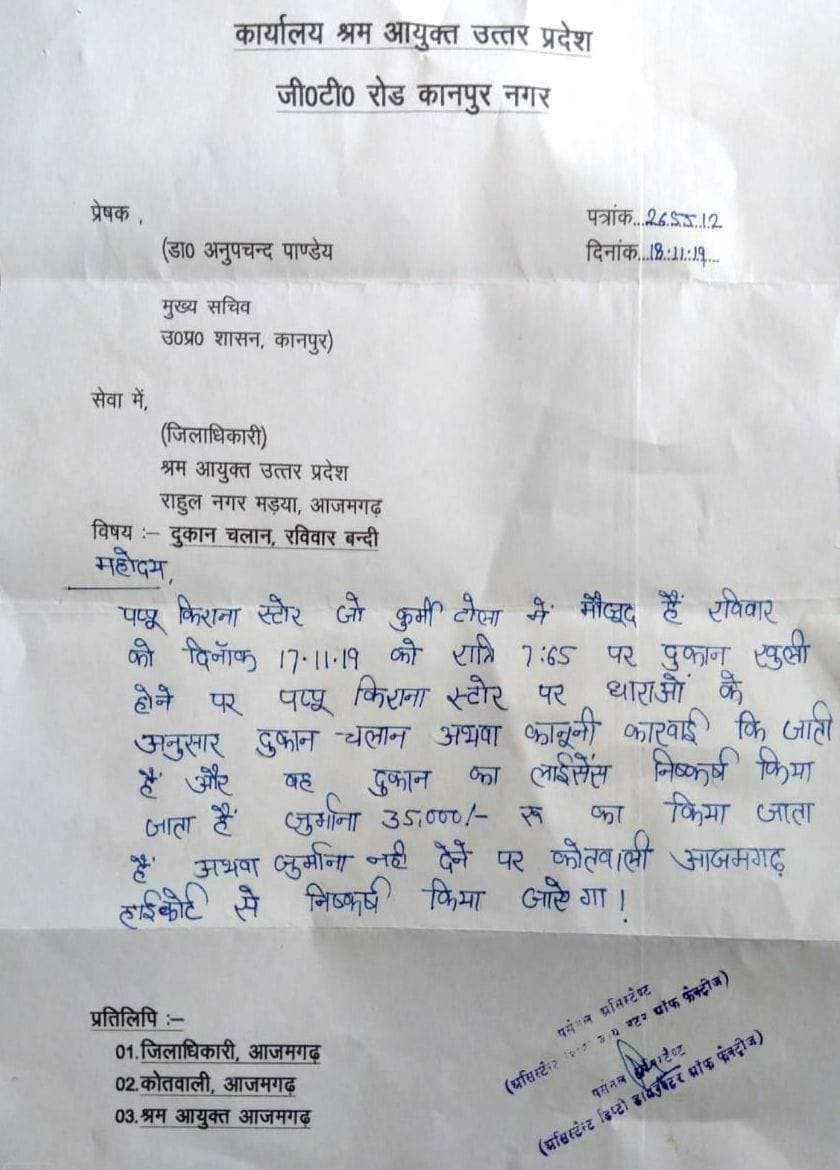 कार्यालय श्रम आयुक्त उत्तर प्रदेश
जी0टी0 रोड कानपुर नगर
प्रेषक ,
पत्रांक...26.55.12
(डा0 अनुपचन्द पाण्डेय
दिनांक...18:11:19...
मुख्य सचिव
उ0प्र0 शासन, कानपुर)
सेवा में,
(जिलाधिकारी)
श्रम आयुक्त उत्तर प्रदेश
राहुल नगर मड़या, आजमगढ़
विषय :– दुकान चलान, रविवार बन्दी
महोदय,
पप्पू किराना स्टोर जो कुर्मी टोला में मौजूद हैं रविवार
को दिनॉक 17.11.19 को रात्रि 7:65 पर दुकान खुली
होने पर पप्पू किराना स्टोर पर धाराओं के
अनुसार दुकान चलान अथवा कानूनी कारवाई कि जाती
हैं और वह दुकान का लाईसेंस निष्कर्ष किया
जाता हैं जुर्माना 35,000/- रू का किया जाता
हैं अथवा जुर्माना नही देने पर कोतवाली आजमगढ़
हाईकोर्ट से निष्कर्ष किया जाऐगा !
प्रतिलिपि :–
01.जिलाधिकारी, आजमगढ़
02.कोतवाली, आजमगढ़
03.श्रम आयुक्त आजमगढ़
पर्सनल असिस्टैण्ट
(असिस्टेन्ट ऑफ फैक्ट्रीज)
पर्सनल असिस्टैण्ट
(असिस्टेन्ट डिप्टी डायरेक्टर ऑफ फैक्ट्रीज)